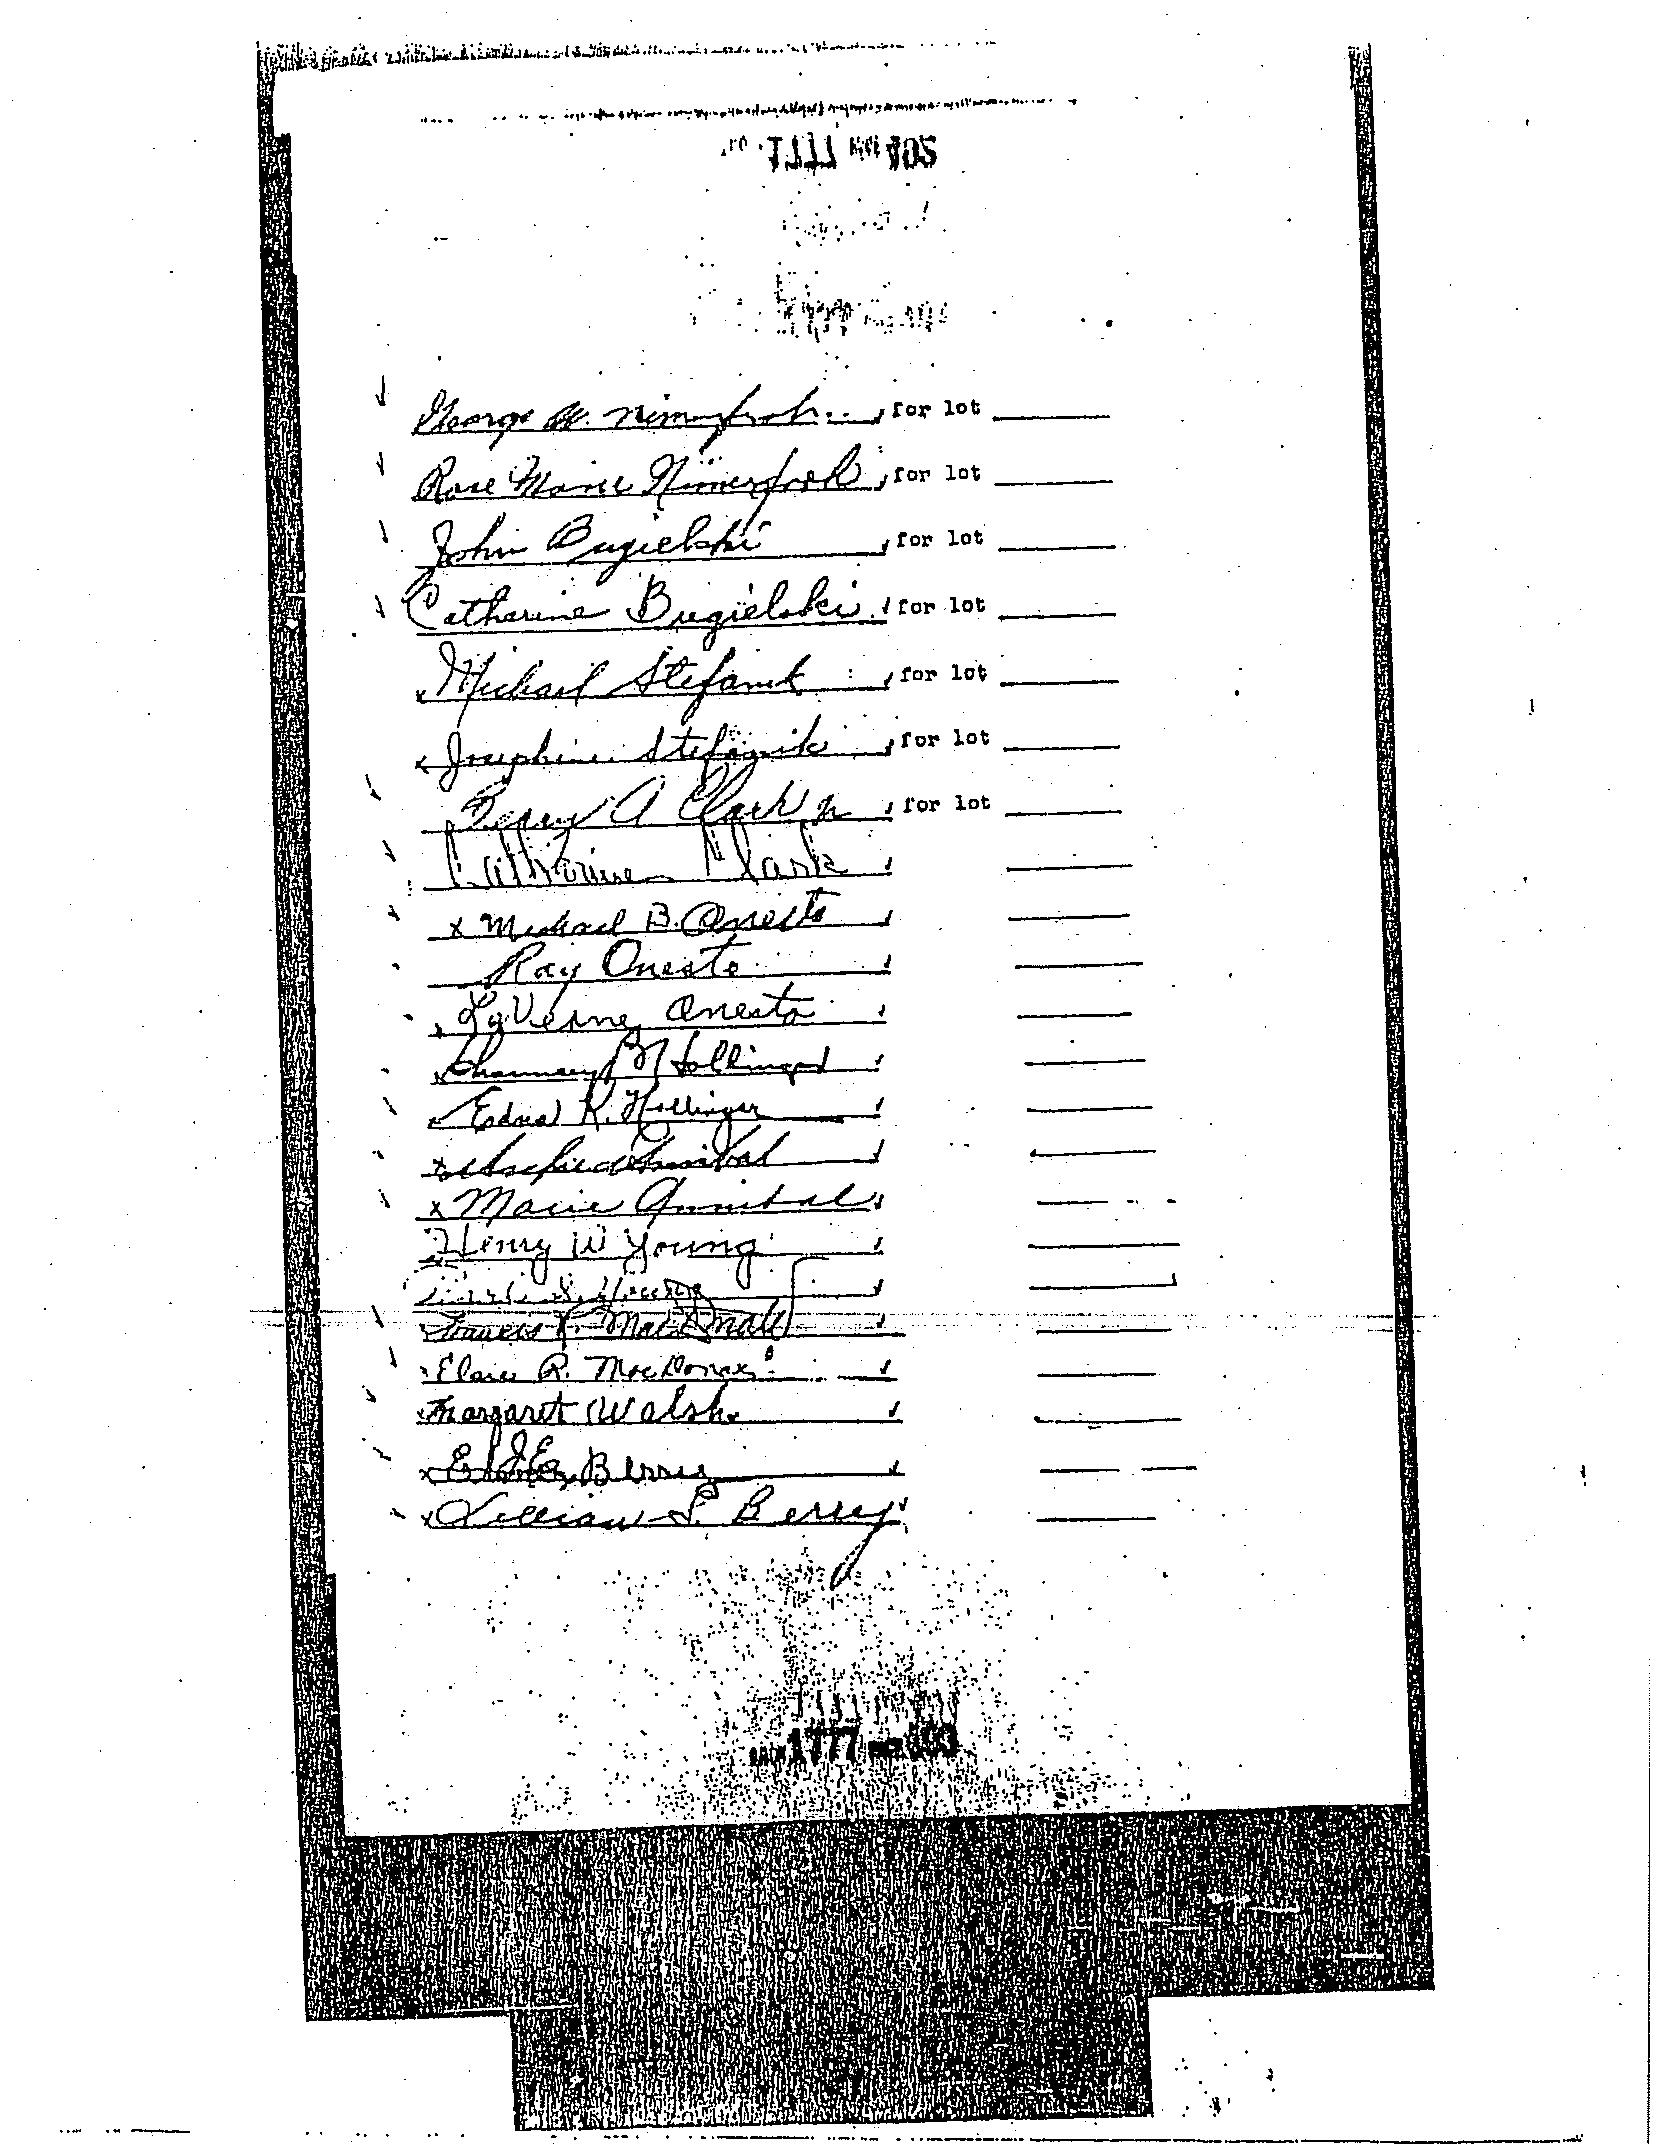 1777
George W. Nimerfroh, for lot
Rose Marie Nimerfroh, for lot
John Bugielski, for lot
Catharine Bugielski, for lot
x Michael Stefanik, for lot
x Josephine Stefanik, for lot
A Clark Jr, for lot
Catherine Clark,
x Michael B. Onesto,
Ray Onesto,
x LaVerne Onesto,
x Chauncey M Hollinger,
x Edna K. Hollinger,
x Annibal,
x Marie Annibal,
x Henry W Young,
Young,
x Francis R. MacDonald,
x R. MacDonald,
x Margaret Walsh,
x Berry,
x Lillian S. Berry,
1777